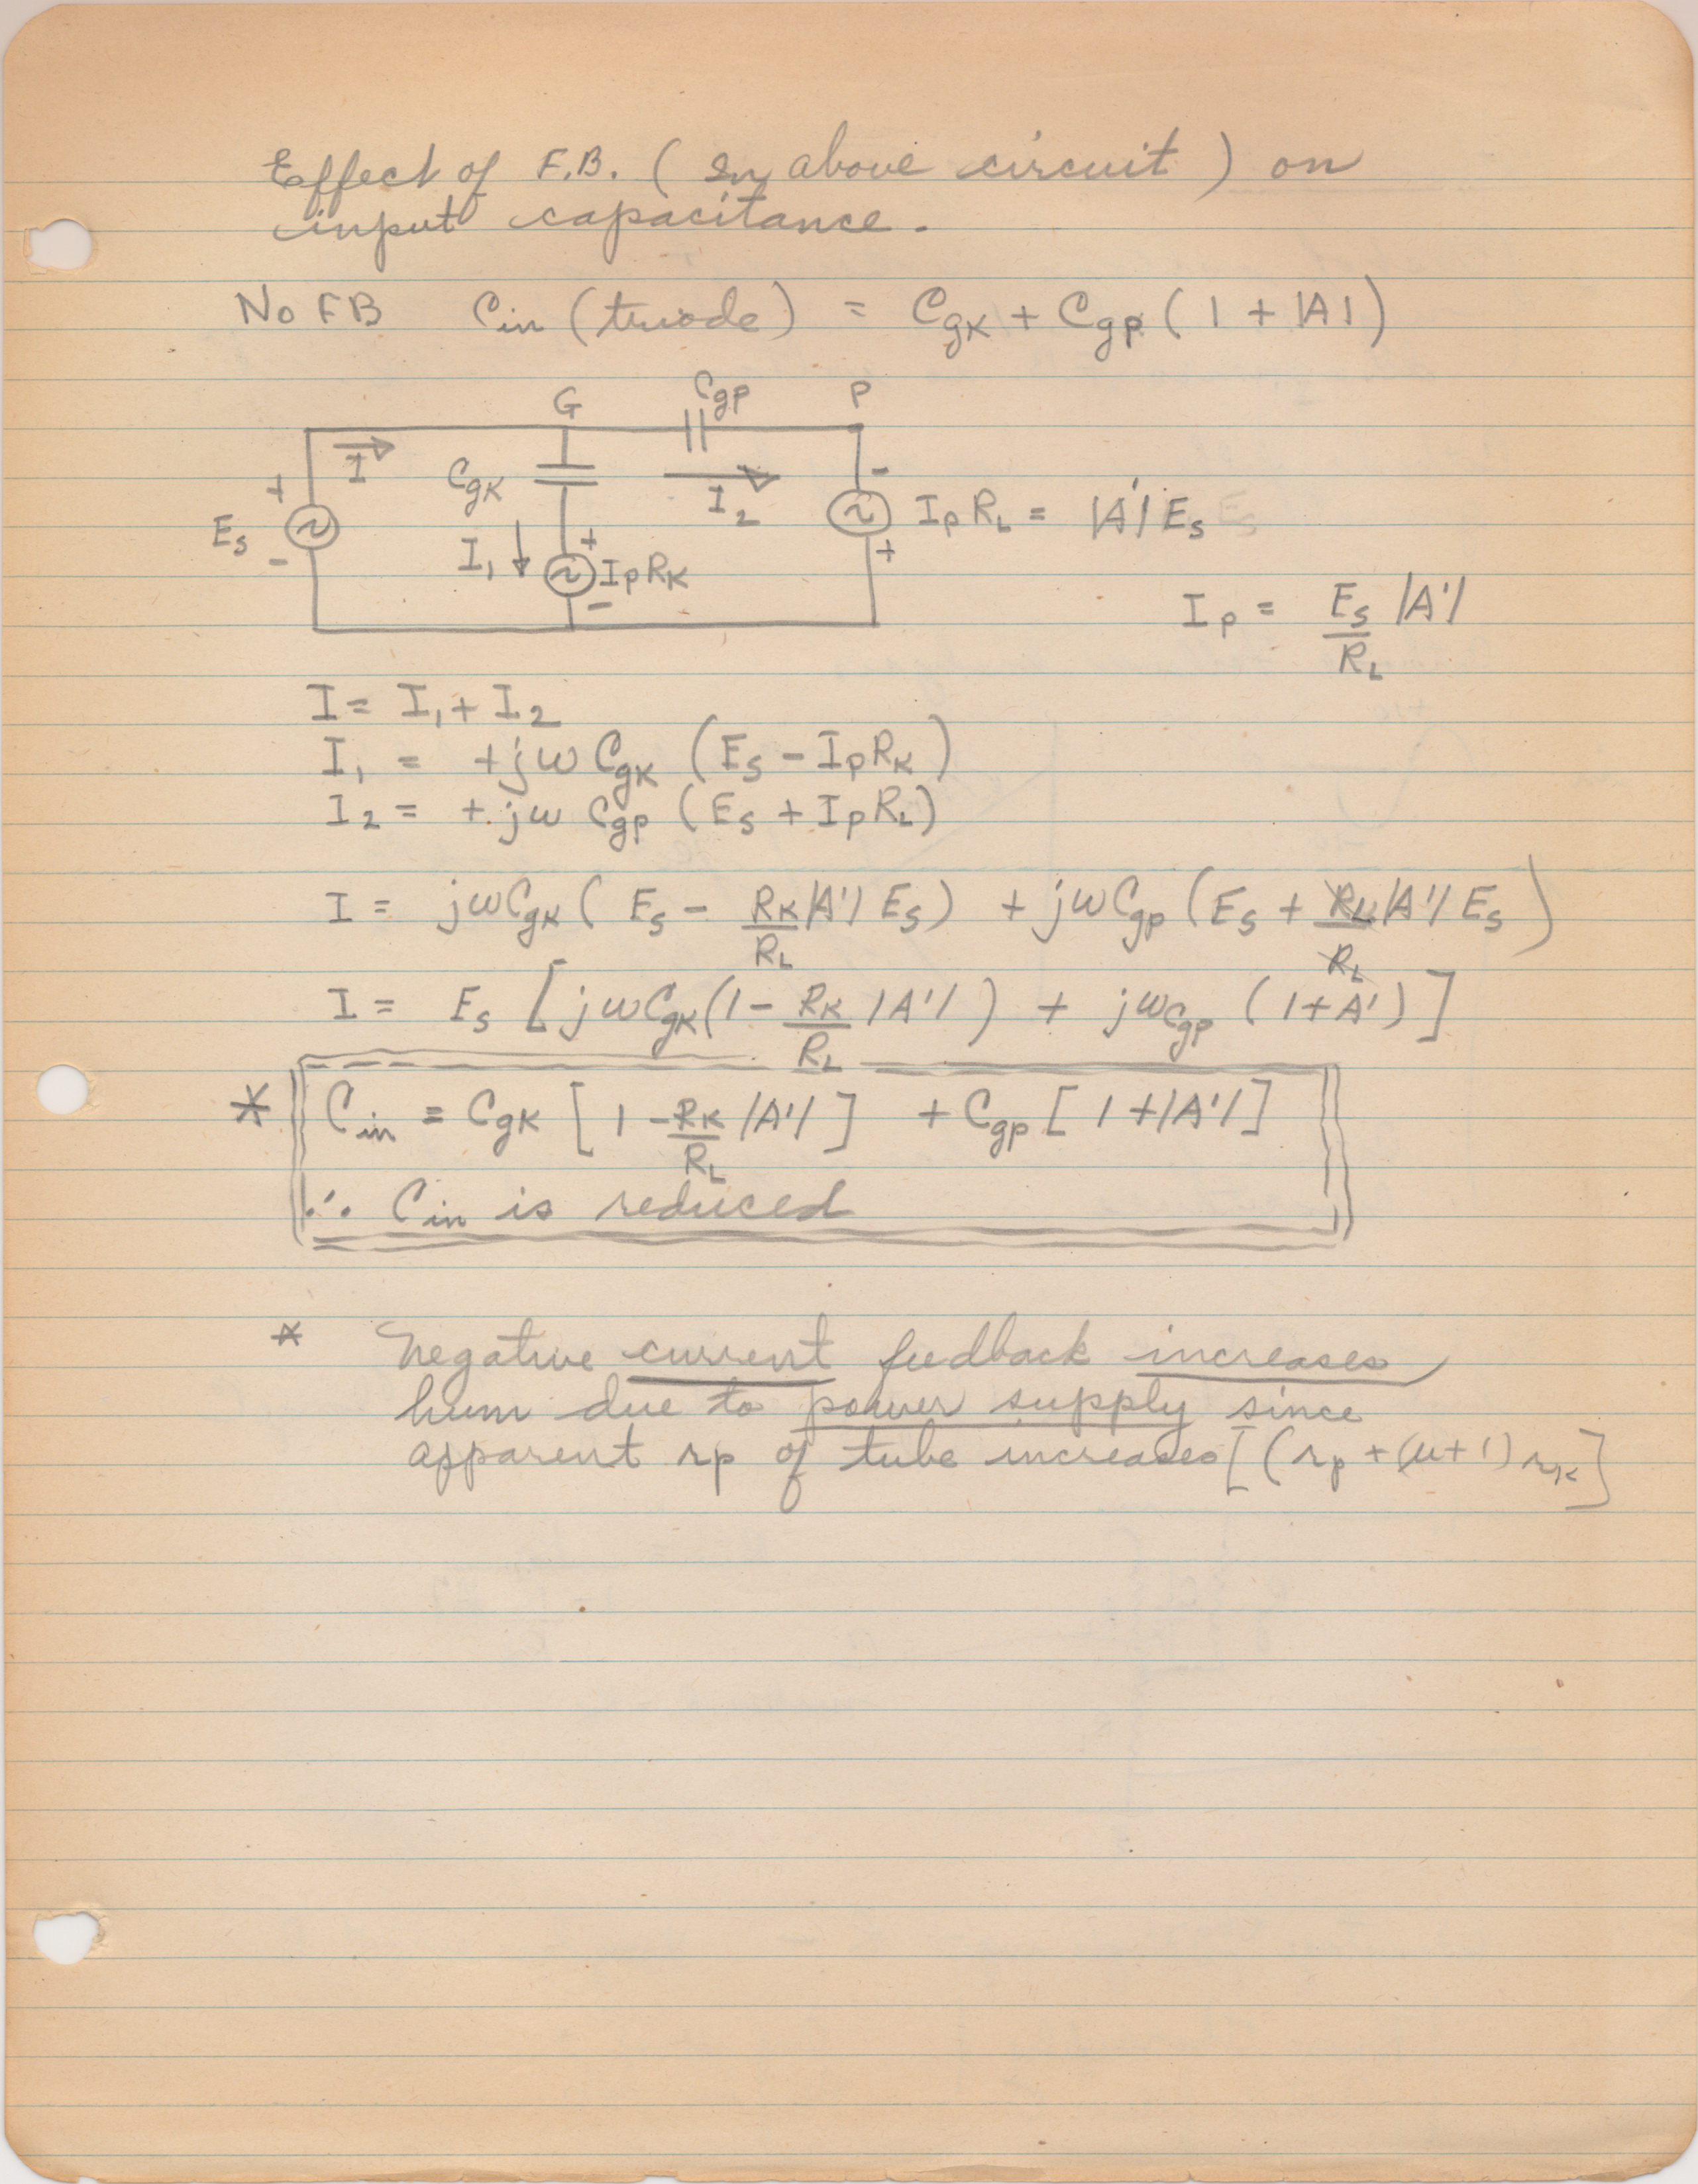 Effect of F.B. ( In above circuit ) on
input capacitance.
No FB Cin (triode) = CgK + Cgp ( 1 + |A| )
G Cgp P
I CgK I2 -
+ Es - I1 + IpRK - IpRL = |A'| Es +
Ip = Es/RL |A'|
I = I1 + I2
I1 = +jω CgK (Es - IpRK)
I2 = +jω Cgp (Es + IpRL)
I = jωCgK ( Es - RK/RL |A'| Es) + jωCgp (Es + RL/RL |A'| Es )
I = Es [ jωCgK (1 - RK/RL |A'| ) + jωCgp ( 1 + A' ) ]
* Cin = CgK [ 1 - RK/RL |A'| ] + Cgp [ 1 + |A'| ]
∴ Cin is reduced
* Negative current feedback increases
hum due to power supply since
apparent rp of tube increases [ (rp + (μ+1) rk ]